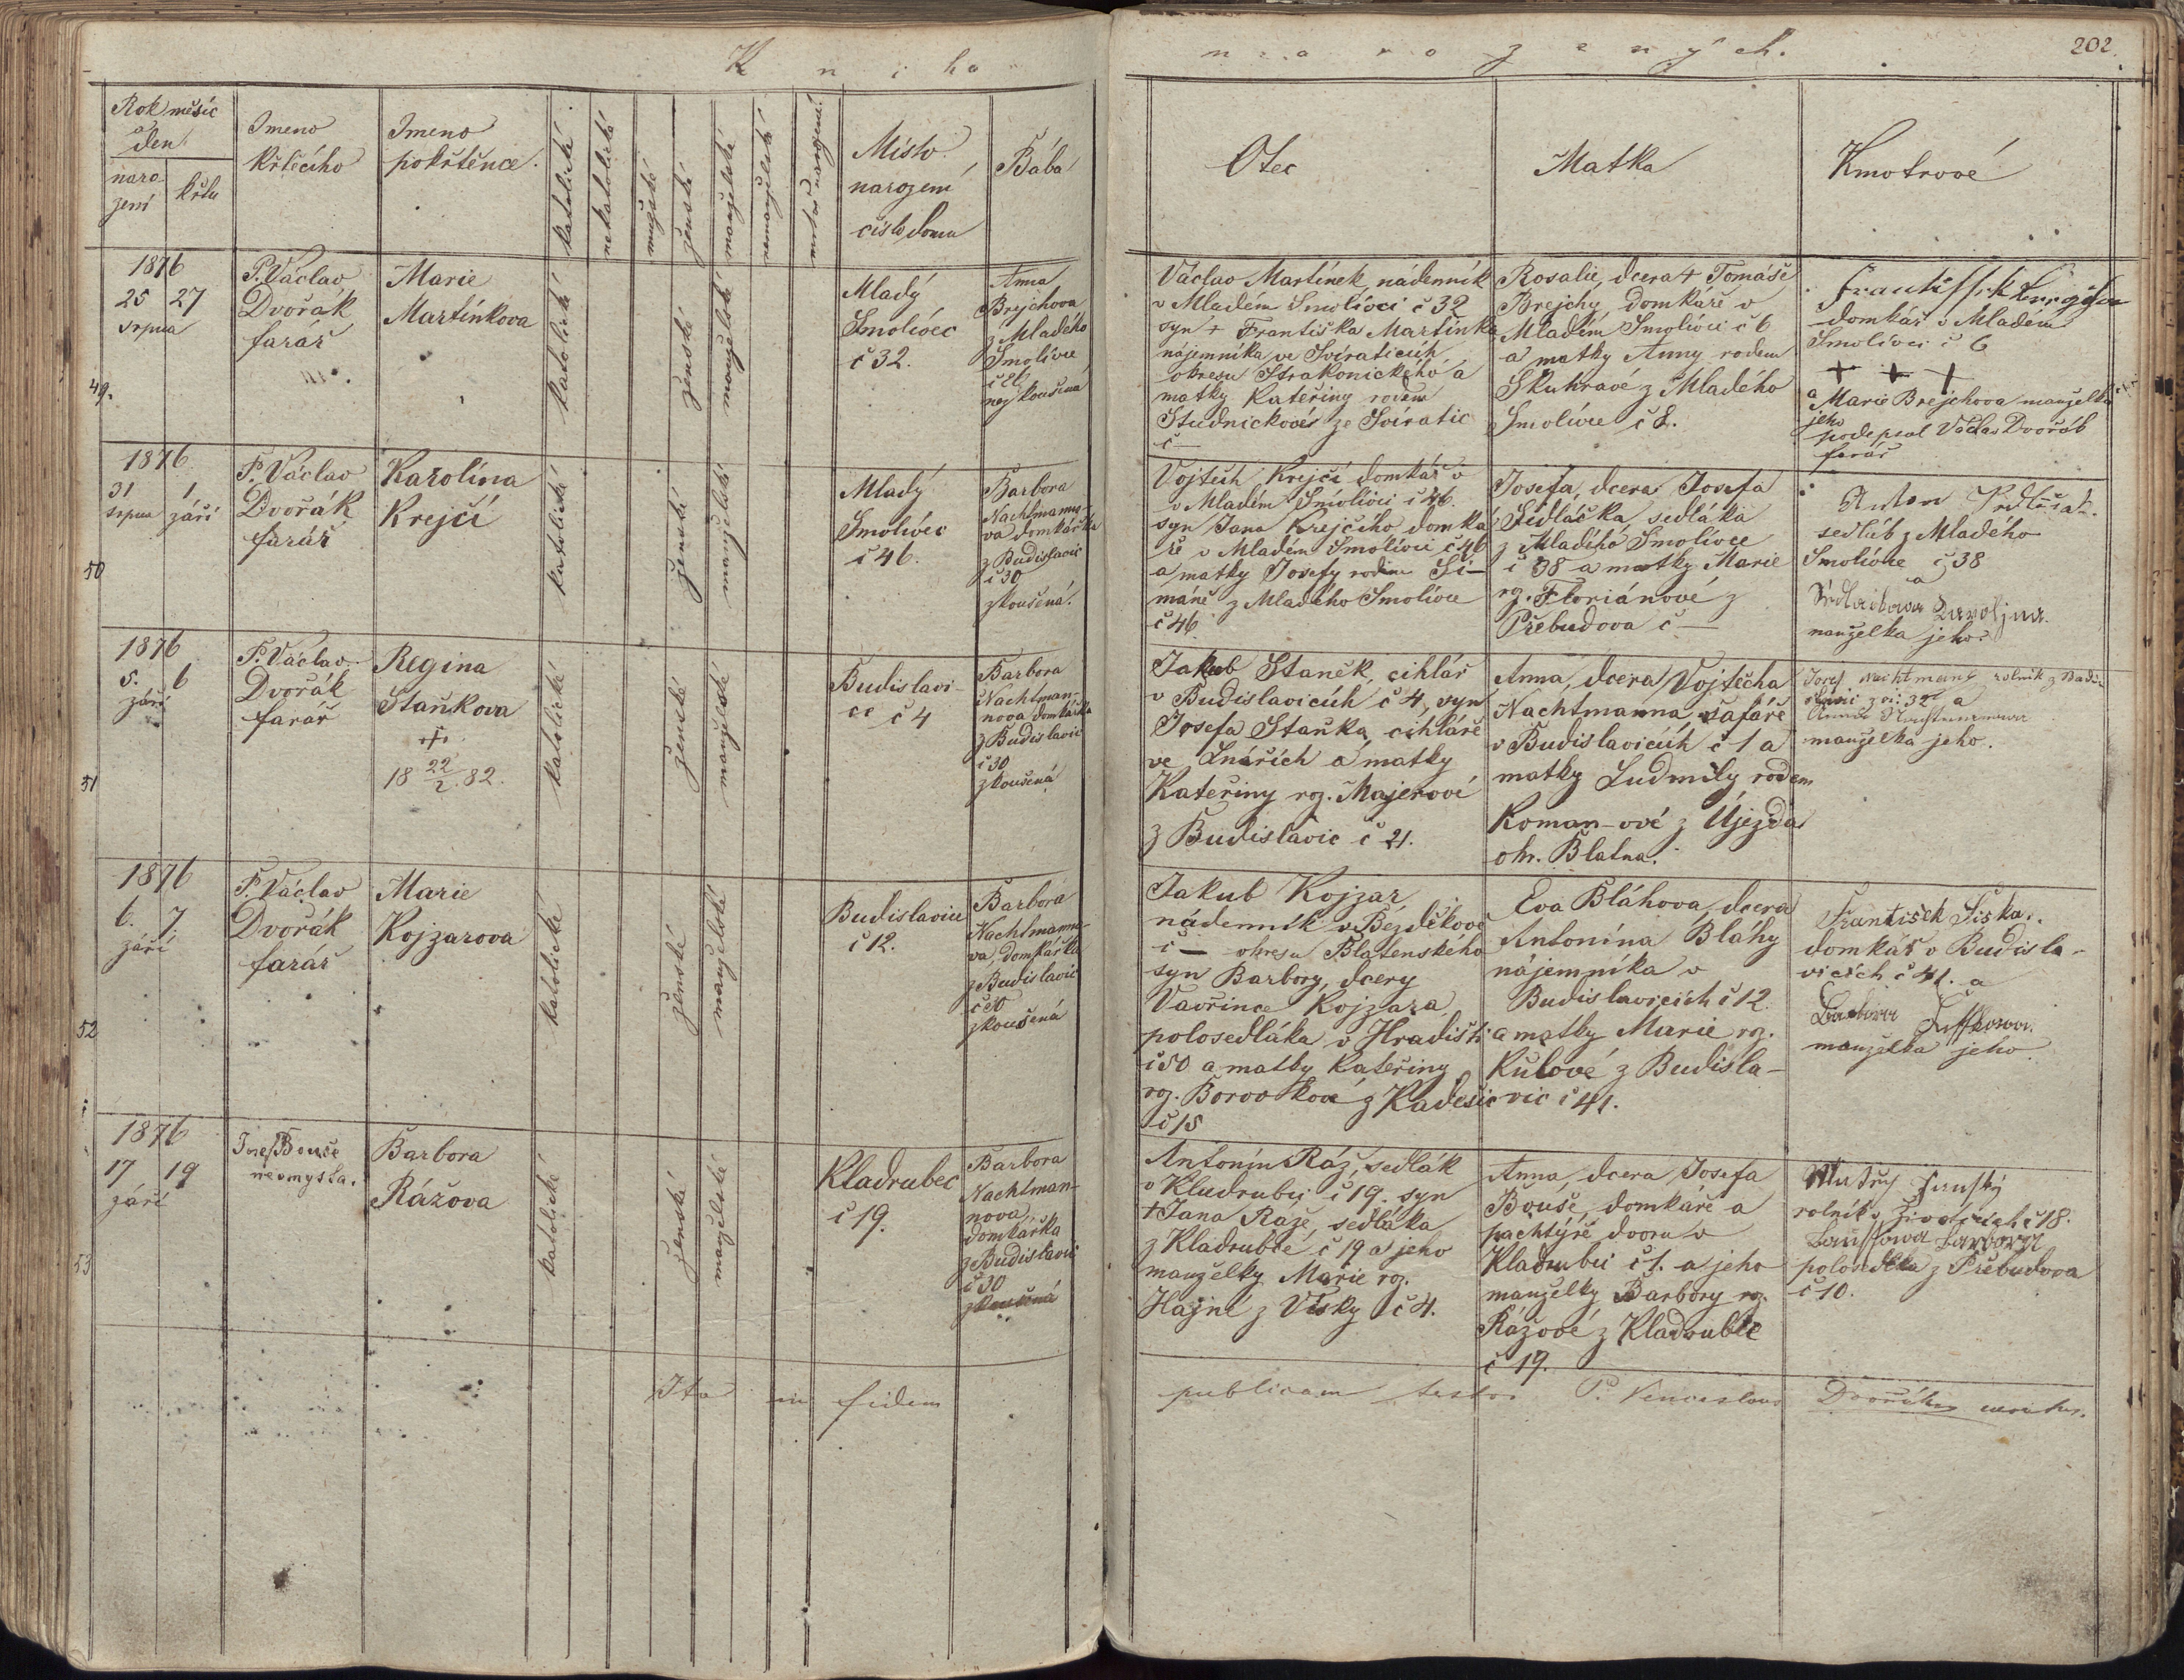 Kniha
narozených.
202.
Rok měsíc
den
naro-
zení
křtu
Jmeno
křtícího
Jmeno
pokřtěnce.
katolické
nekatolické
mužské
ženské
manželské
nemanželské
mrtvě narozené
Místo
narození
číslo domu
Bába
Otec
Matka
Kmotrové
49.
1876
25 27
srpna
P. Václav
Dvořák
farář
Marie
Martínkova
katolické
ženské
manželské
Mladý
Smolivec
č 32.
Anna
Brejchova
z Mladého
Smolivce
nezkoušená
Václav Martínek, nádenník
v Mladém Smolivci č 32
syn + Františka Martínka
nájemníka ve Svíraticích
okresu Strakonického a
matky Kateřiny rodem
Studničkové ze Svíratic
č —
Rosalie, dcera + Tomáše
Brejchy, domkáře v
Mladém Smolivci č 6
a matky Anny rodem
Skuhravé z Mladého
Smolivce č 8.
Frantissek
domkář v Mladém
Smolivci č 6
+ + +
a Marie Brejchova manželka
jeho
podepsal Václav Dvořák
farář
50
1876
31 1
srpna září
P. Václav
Dvořák
farář
Karolína
Krejčí
katolické
ženské
manželské
Mladý
Smolivec
č 46.
Barbora
Nachtmanno-
va domkářka
z Budislavic
č 30
zkoušená.
Vojtěch Krejčí domkář v
v Mladém Smolivci č 46.
syn Jana Krejčího domká-
ře v Mladém Smolivci č 46
a matky Josefy rodem Ši-
máně z Mladého Smolivce
č 46
Josefa, dcera Josefa
Sedláčka, sedláka
z Mladého Smolivce
č 38 a matky Marie
roz. Floriánové z
Přebudova č —
Anton
sedlák z Mladého
Smolivce č 38
a
Karolina
manželka jeho
51
1876
5. 6
září
P. Václav
Dvořák
farář
Regina
Staňkova
+
18 22/2 82.
katolické
ženské
manželské
Budislavi-
ce č 4
Barbora
Nachtman-
nova domkářka
z Budislavic
č 30
zkoušená
Jakub Staněk, cihlář
v Budislavicích č 4, syn
Josefa Staňka, cihláře
ve Lnářích a matky
Kateřiny roz. Majerové
z Budislavic č 21.
Anna, dcera Vojtěcha
Nachtmanna šafáře
v Budislavicích č 1 a
matky Ludmily rodem
Roman-ové z Újezda
okr. Blatna.
Josef Nachtmann rolník z Budi-
slavic č 32 a
Anna Nachtmannova
manželka jeho.
52
1876
6. 7.
září
P. Václav
Dvořák
farář
Marie
Kojzarova
katolické
ženské
manželské
Budislavice
č 12.
Barbora
Nachtmanno-
va, domkářka
z Budislavic
č 30
zkoušená
Jakub Kojzar
nádenník v Bezděkově
č — okresu Blatenského
syn Barbory, dcery
Vavřince Kojzara
polosedláka v Hradišti
č 50 a matky Kateřiny
roz. Borovkové z Kadešic
č 15
Eva Bláhova, dcera
Antonína Bláhy
nájemníka v
Budislavicích č 12.
a matky Marie roz.
Kubové z Budisla-
vic č 41.
František Siska
domkář v Budisla-
vicích č 41. a
Barbora
manželka jeho
53
1876
17 19
září
Josef Bouše
Barbora
Rážova
katolické
ženské
manželské
Kladrubec
č 19.
Barbora
Nachtman-
nova
domkářka
z Budislavic
č 30
zkoušená
Antonín Ráž, sedlák
v Kladrubci č 19. syn
+ Jana Ráže, sedláka
z Kladrubce č 19 a jeho
manželky Marie roz.
Hajné z Vísky č 4.
Anna, dcera Josefa
Bouše, domkáře a
pachtýře dvoru v
Kladrubci č 1. a jeho
manželky Barbory roz.
Rážové z Kladrubce
č 19.
Matěj
rolník v Životicích č 18.
Barbora
polosedlka z Přebudova
č 10.
Ita in fidem publicam testor P. Venceslaus Dvořák curatus.